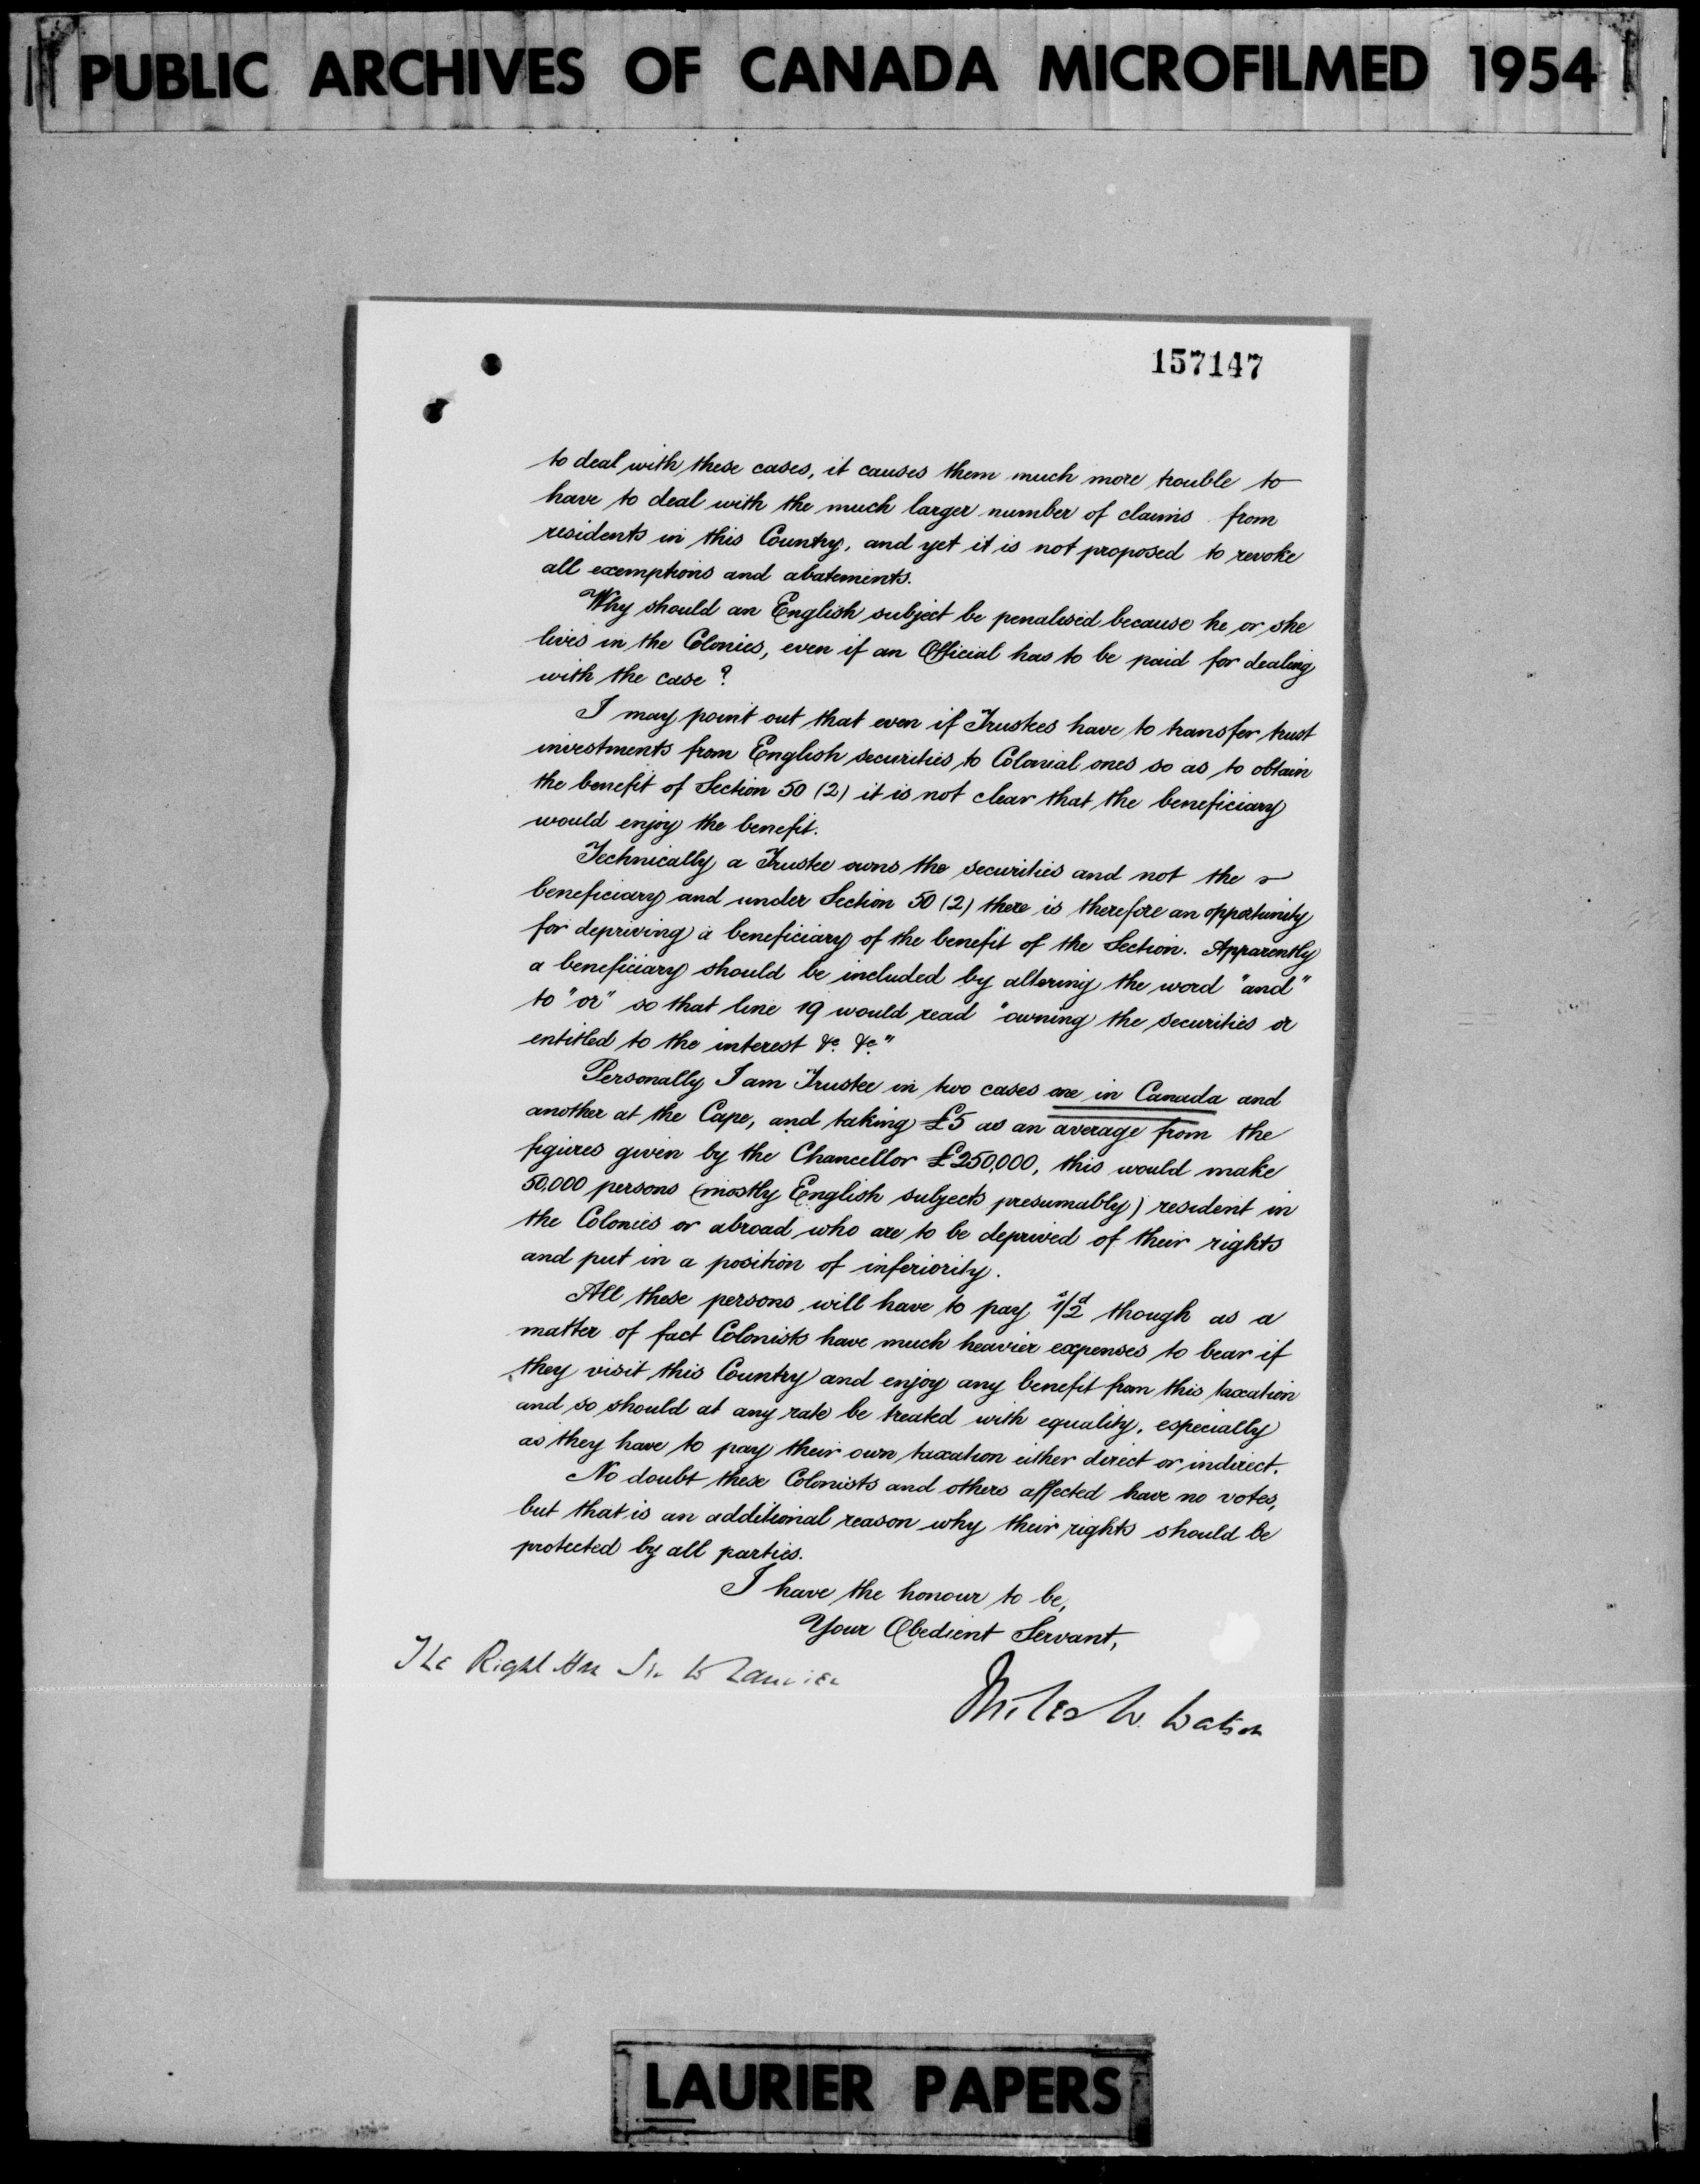 PUBLIC ARCHIVES OF CANADA MICROFILMED 1954
157147
to deal with these cases, it causes them much more trouble to
have to deal with the much larger number of claims from
residents in this Country, and yet it is not proposed to revoke
all exemptions and abatements.
Why should an English subject be penalised because he or she
lives in the Colonies, even if an Official has to be paid for dealing
with the case?
I may point out that even if Trustees have to transfer trust
investments from English securities to Colonial ones so as to obtain
the benefit of Section 50 (2) it is not clear that the beneficiary
would enjoy the benefit.
Technically a Trustee owns the securities and not the
beneficiary and under Section 50 (2) there is therefore an opportunity
for depriving a beneficiary of the benefit of the Section. Apparently
a beneficiary should be included by altering the word "and"
to "or" so that line 19 would read "owning the securities or
entitled to the interest &c. &c."
Personally I am Trustee in two cases one in Canada and
another at the Cape, and taking £5 as an average from the
figures given by the Chancellor £250,000, this would make
50,000 persons (mostly English subjects presumably) resident in
the Colonies or abroad who are to be deprived of their rights
and put in a position of inferiority.
All these persons will have to pay 1s/2d though as a
matter of fact Colonists have much heavier expenses to bear if
they visit this Country and enjoy any benefit from this taxation
and so should at any rate be treated with equality, especially
as they have to pay their own taxation either direct or indirect.
No doubt these Colonists and others affected have no votes,
but that is an additional reason why their rights should be
protected by all parties.
I have the honour to be,
Your Obedient Servant,
The Right Hon Sir W Laurier
Miles W. Watson
LAURIER PAPERS